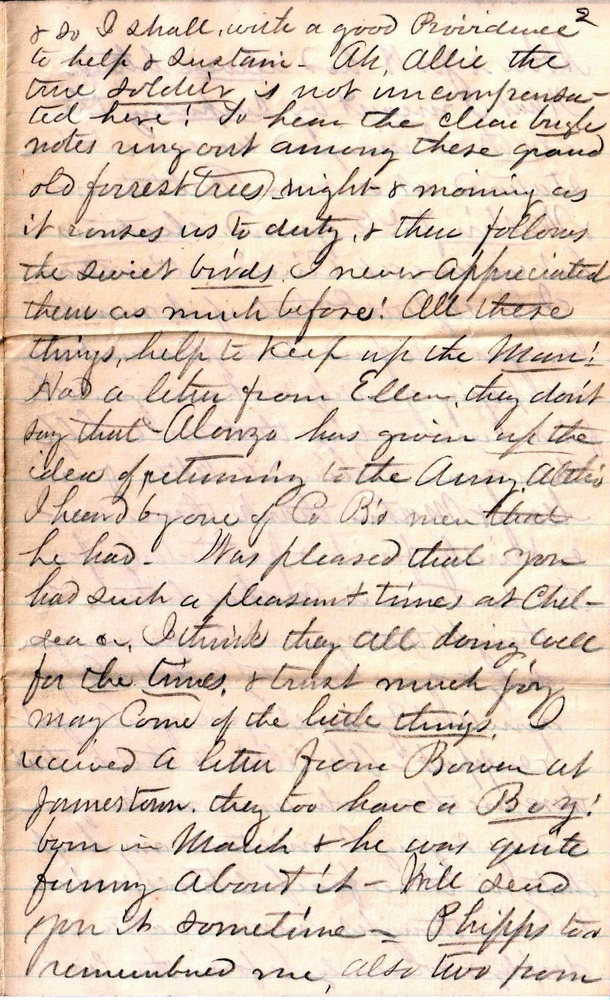 2
& so I shall, with a good Providence
to help & sustain - Ah, Allie the
true soldier is not uncompensa-
ted here! To hear the clear bugle
notes ring out among these grand
old forrest trees, night & morning as
it rouses us to duty, & then follows
the sweet birds. I never appreciated
them as much before! All these
things, help to keep up the Man!
Had a letter from Ellen, they don't
say that Alonzo has given up the
idea of returning to the Army, altho
I heard by one of Co B's men that
he had - Was pleased that you
had such a pleasant times at Chel-
sea, I think they all doing well
for the times, & trust much joy
may come of the little things. I
received a letter from Bowen at
Jamestown. they too have a Boy!
born in March & he was quite
funny about it - Will send
you it sometime - Phipps too
remembered me, also two from